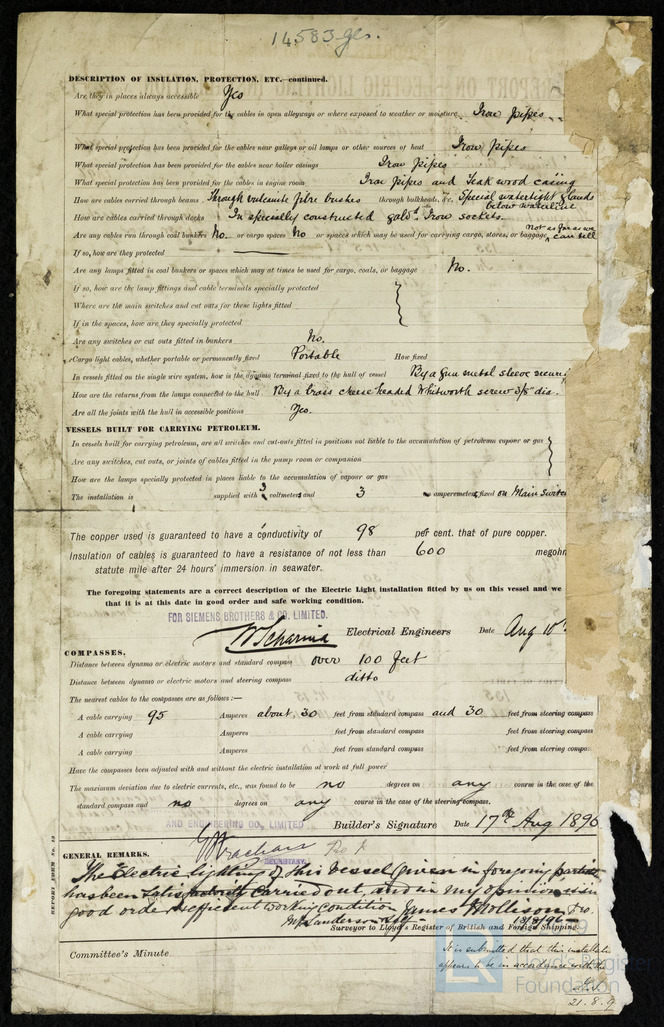 14583 gls.
DESCRIPTION OF INSULATION, PROTECTION, ETC.—continued.
Are they in places always accessible Yes
What special protection has been provided for the cables in open alleyways or where exposed to weather or moisture Iron pipes
What special protection has been provided for the cables near galleys or oil lamps or other sources of heat Iron pipes
What special protection has been provided for the cables near boiler casings Iron pipes
What special protection has been provided for the cables in engine room Iron pipes and Teak wood casing
How are cables carried through beams Through vulcanite fibre bushes through bulkheads, &c. Special watertight glands below waterline
How are cables carried through decks In specially constructed galvd Iron sockets.
Are any cables run through coal bunkers No. or cargo spaces No or spaces which may be used for carrying cargo, stores, or baggage not as far as we can tell
If so, how are they protected
Are any lamps fitted in coal bunkers or spaces which may at times be used for cargo, coals, or baggage No.
If so, how are the lamp fittings and cable terminals specially protected
Where are the main switches and cut outs for these lights fitted
If in the spaces, how are they specially protected
Are any switches or cut outs fitted in bunkers No.
Cargo light cables, whether portable or permanently fixed Portable How fixed
In vessels fitted on the single wire system, how is the dynamo terminal fixed to the hull of vessel By a gun metal sleeve securi
How are the returns from the lamps connected to the hull By a brass cheese headed Whitworth screw 3/8" dia.
Are all the joints with the hull in accessible positions Yes.
VESSELS BUILT FOR CARRYING PETROLEUM.
In vessels built for carrying petroleum, are all switches and cut-outs fitted in positions not liable to the accumulation of petroleum vapour or gas
Are any switches, cut outs, or joints of cables fitted in the pump room or companion
How are the lamps specially protected in places liable to the accumulation of vapour or gas
The installation is supplied with 3 voltmeters and 3 amperemeters, fixed on Main Switch
The copper used is guaranteed to have a conductivity of 98 per cent. that of pure copper.
Insulation of cables is guaranteed to have a resistance of not less than 600 megohm
statute mile after 24 hours' immersion in seawater.
The foregoing statements are a correct description of the Electric Light installation fitted by us on this vessel and we
that it is at this date in good order and safe working condition.
FOR SIEMENS BROTHERS & CO. LIMITED.
Electrical Engineers Date Aug 10th
COMPASSES.
Distance between dynamo or electric motors and standard compass over 100 feet
Distance between dynamo or electric motors and steering compass ditto
The nearest cables to the compasses are as follows:—
A cable carrying 95 Amperes about 30 feet from standard compass and 30 feet from steering compass
A cable carrying Amperes feet from standard compass feet from steering compass
A cable carrying Amperes feet from standard compass feet from steering compass
Have the compasses been adjusted with and without the electric installation at work at full power
The maximum deviation due to electric currents, etc., was found to be no degrees on any course in the case of the
standard compass and no degrees on any course in the case of the steering compass.
AND ENGINEERING CO. LIMITED
Builder's Signature Date 17th Aug 1896
SECRETARY.
REPORT FORM No. 13
GENERAL REMARKS.
The Electric lighting of this Vessel given in foregoing
has been Satisfactorily carried out, and in my opinion is in
good order & efficient working condition James Mollison
13/8/96
Surveyor to Lloyd's Register of British and Foreign Shipping.
Committee's Minute
It is submitted that this installation
appears to be in accordance with the
21.8.9
Lloyd's Register
Foundation